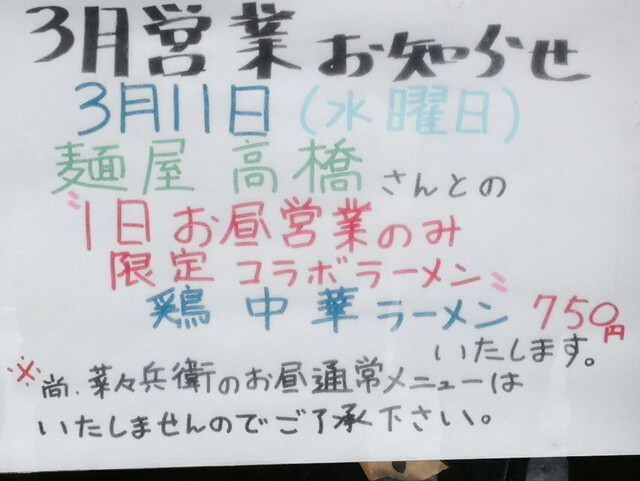 3月営業お知らせ
3月11日(水曜日)
麺屋 高橋さんとの
〝1日お昼営業のみ
限定コラボラーメン〟
鶏中華ラーメン 750円
いたします。
※尚、菜々兵衛のお昼通常メニューは
いたしませんのでご了承下さい。